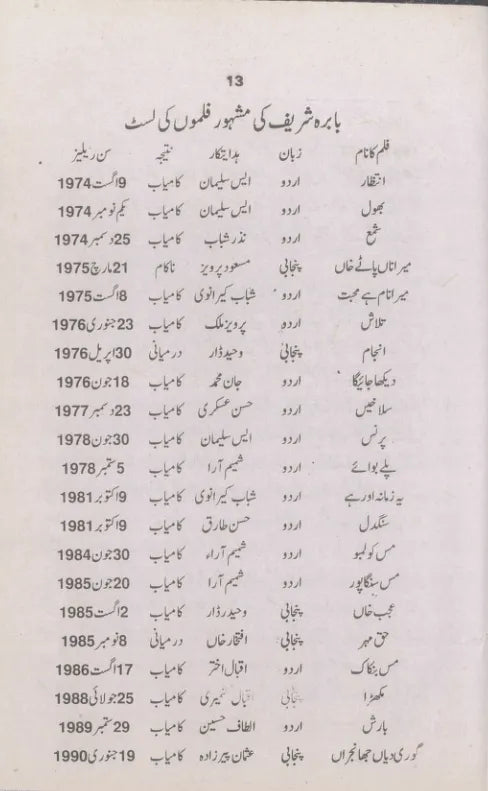 13
بابرہ شریف کی مشہور فلموں کی لسٹ
فلم کا نام زبان ہدایتکار نتیجہ سن ریلیز
انتظار اردو ایس سلیمان کامیاب 9اگست1974
بھول اردو ایس سلیمان کامیاب یکم نومبر1974
شمع اردو نذر شباب کامیاب 25دسمبر1974
میرا ناں پاٹے خاں پنجابی مسعود پرویز ناکام 21مارچ1975
میرا نام ہے محبت اردو شباب کیرانوی کامیاب 8اگست1975
تلاش اردو پرویز ملک کامیاب 23جنوری1976
انجام پنجابی وحید ڈار درمیانی 30اپریل1976
دیکھا جائیگا اردو جان محمد کامیاب 18جون1976
سلاخیں اردو حسن عسکری کامیاب 23دسمبر1977
پرنس اردو ایس سلیمان کامیاب 30جون1978
پلے بوائے اردو شمیم آرا کامیاب 5ستمبر1978
یہ زمانہ اور ہے اردو شباب کیرانوی کامیاب 9اکتوبر1981
سنگدل اردو حسن طارق کامیاب 9اکتوبر1981
مس کولمبو اردو شمیم آراء کامیاب 30جون1984
مس سنگاپور اردو شمیم آرا کامیاب 20جون1985
عجب خاں پنجابی وحید ڈار کامیاب 2اگست1985
حق مہر پنجابی افتخار خاں درمیانی 8نومبر1985
مس بنکاک اردو اقبال اختر کامیاب 17اگست1986
مکھڑا پنجابی اقبال کشمیری کامیاب 25جولائی1988
بارش اردو الطاف حسین کامیاب 29ستمبر1989
گوری دیاں جھانجراں پنجابی عثمان پیرزادہ کامیاب 19جنوری1990